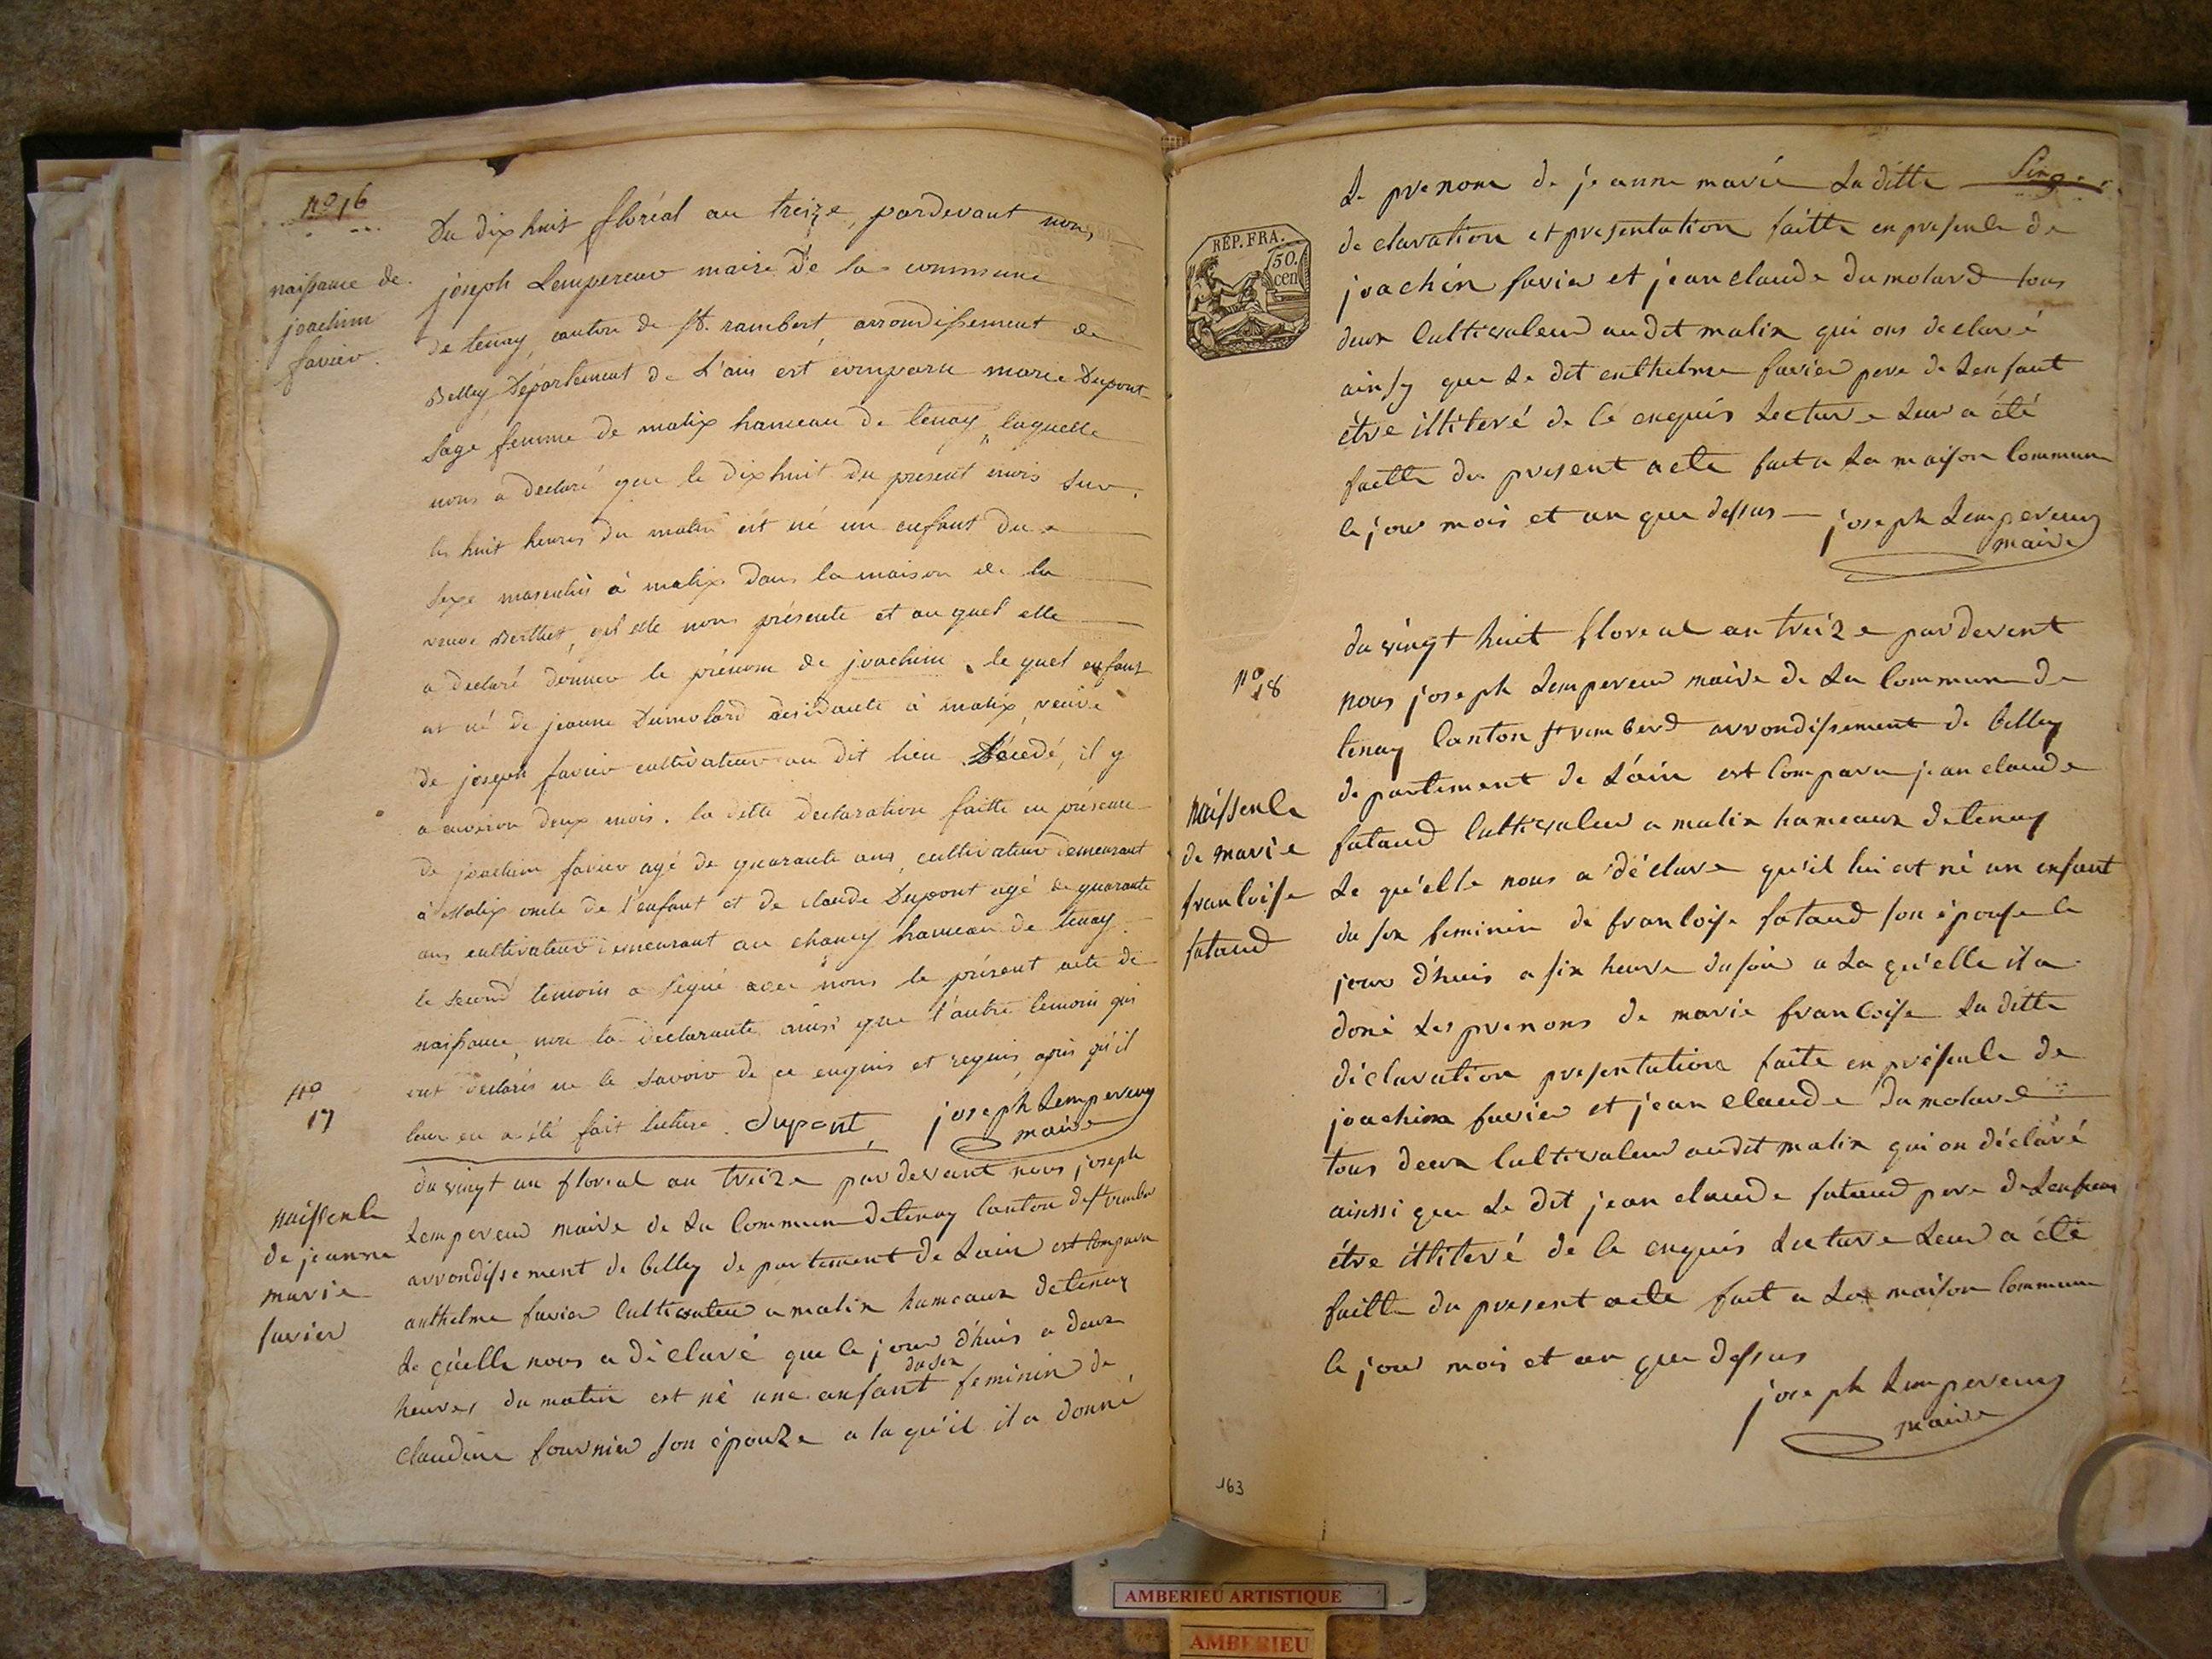 nº 16
naissance de
joachim
favier.
Du dix huit floréal an treize, pardevant nous,
joseph Lempereur maire de la commune
de tenay, canton de St. rambert, arrondissement de
Belley, Département de L'ain est comparu marie Dupont
sage femme de malix hameau de tenay, laquelle
nous a declaré que le dixhuit du présent mois sur
les huit heures du matin est né un enfant du
sexe masculin à malix dans la maison de la
veuve Berthet, qel elle nous présente et au quel elle
a declaré donner le prénom de joachim. le quel enfant
est né de jeanne Dumolard residante à malix, veuve
de joseph favier cultivateur au dit lieu Décédé, il y
a environ deux mois. la ditte declaration faitte en présence
de joachim favier agé de quarante ans, cultivateur demeurant
à Malix oncle de l'enfant et de claude Dupont agé de quarante
ans cultivateur demeurant au chaney hameau de tenay.
le second temoin a signé avec nous le présent acte de
naissance, non la déclarante ainsi que l'autre temoin qui
ont declarés ne le savoir de ce enquis et requis, après qu'il
leur en a été fait lecture. dupont, joseph Lempereur
maire
nº
17
naissence
de jeanne
marie
favier
du vingt un floreal an treize par devant nous joseph
Lempereur maire de La Commune de tenay Canton de St rambert
arrondissement de belley de partement de Lain est Comparu
anthelme favier Cultivateur a malix hameaux de tenay
Le quelle nous a dé claré que le jour d'huis a deux
heures du matin est né une anfant du sex feminin de
claudine fournier son épouze a la qu'il il a donné
Le prenom de jeanne marie La ditte
RÉP. FRA.
50.
cen
de claration et presentation faitte en presence de
joachin favier et jean claude dumolard tous
deux Cultivateur audit malix qui ons declaré
ainsy que Le dit enthelme favier pere de Lenfant
étre illiteré de Cé enquis Lecture Leur a été
faitte du present acte fait a La maison Commune
le jour mois et an que dessus joseph Lempereur
maire
nº
18
naissence
de marie
francoise
fataud
du vingt huit floreal an treize par devent
nous joseph Lempereur maire de La Commune de
tenay Canton St ramberd arrondissement de belley
de partement de L'ain est Comparu jean claude
fataud Cultivateur a malix hameaux de tenay
Le qu'elle nous a déclare qu'il lui est né un enfant
du sex feminin de francoise fataud son épouse le
jour d'huis a six heure du soir a La qu'elle il a
doné Les prenons de marie francoise La ditte
déclaration presentation faite en présence de
joachim favier et jean claude dumolard
tous deux Cultivateur audit malix qui on déclaré
ainssi que Le dit jean claude fataud pere de Lenfant
étre illiteré de Ce enquis Lecture Leur a été
faitte du present acte fait a La maison Commune
le jour mois et an que dessus
joseph Lempereur
maire
163
AMBERIEU ARTISTIQUE
AMBERIEU